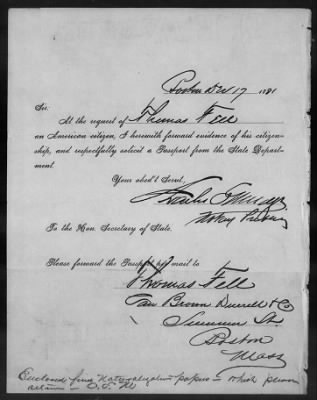 Boston Dec 17 1881
Sir:
At the request of Thomas Fell
an American citizen, I herewith forward evidence of his citizen-
ship, and respectfully solicit a Passport from the State Depart-
ment.
Your obed't Servt,
Charles
Notary Public
To the Hon. Secretary of State.
Please forward the Passport by mail to
Thomas Fell
Care Brown Durrell & Co
Summer St.
Boston
Mass
Enclosed find Naturalization papers - which please
return -